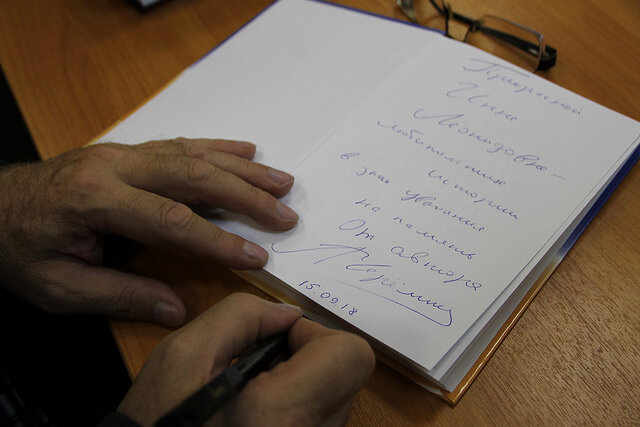 Прекрасной
Инне
Леонидовне -
любительнице
истории
в знак уважения
на память
От автора
Серёмин
15.09.18